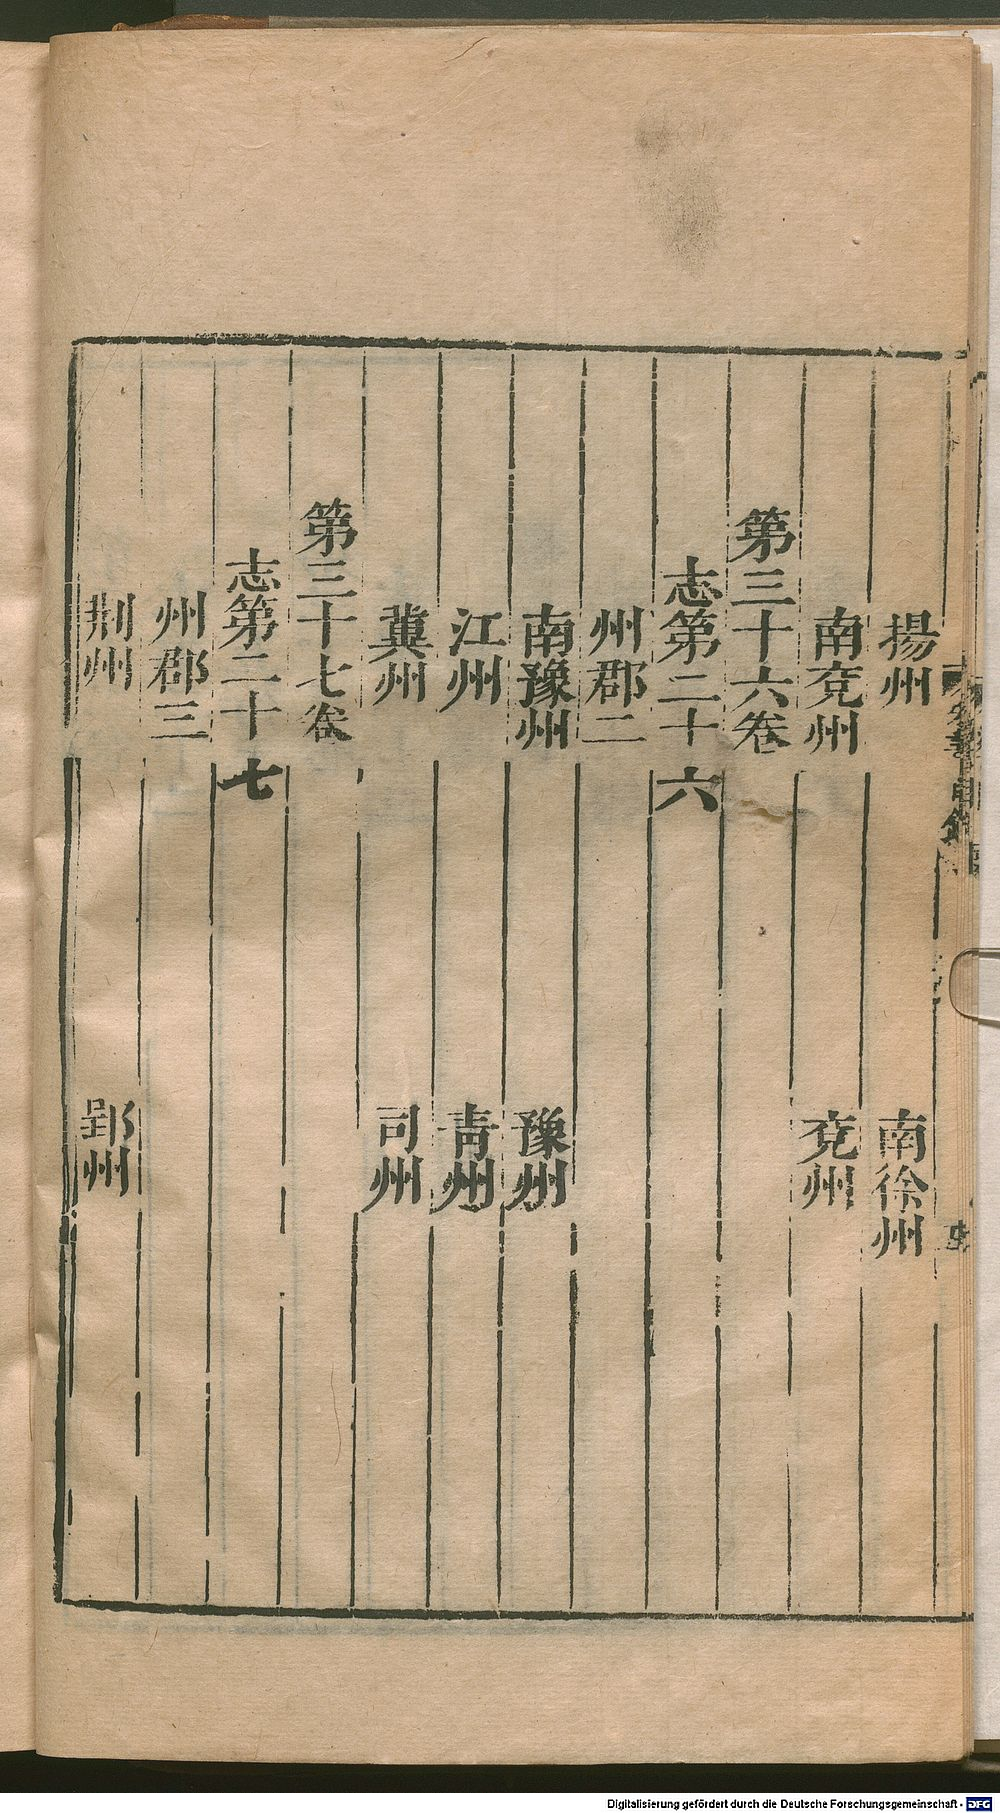 揚州　南徐州
南兗州　兗州
第三十六卷
志第二十六
州郡二
南豫州　豫州
江州　青州
冀州　司州
第三十七卷
志第二十七
州郡三
荆州　郢州
Digitalisierung gefördert durch die Deutsche Forschungsgemeinschaft - DFG